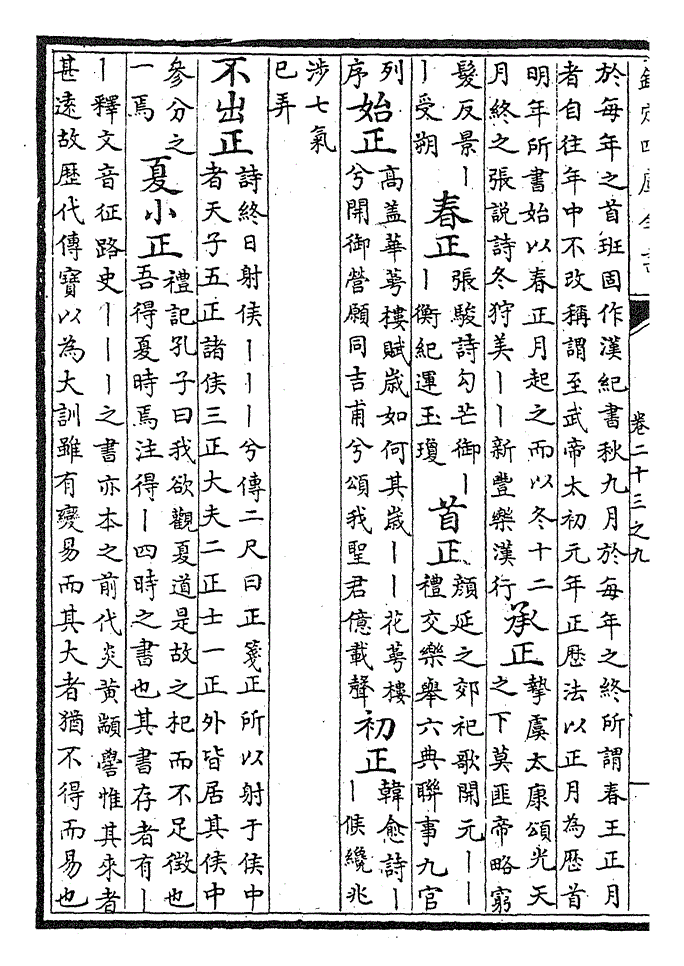 欽定四庫全書
卷二十三之九
於每年之首班固作漢紀書秋九月於每年之終所謂春王正月
者自往年中不改稱謂至武帝太初元年正歷法以正月為歷首
明年所書始以春正月起之而以冬十二
月終之張説詩冬狩美丨丨新豐樂漢行
承正
摯虞太康頌光天
之下莫匪帝略窮
髮反景丨
丨受朔
春正
張駿詩勾芒御丨
丨衡紀運玉瓊
首正
顔延之郊祀歌開元丨丨
禮交樂舉六典聯事九官
列
序
始正
高盖華萼樓賦歲如何其歲丨丨花萼樓
兮開御營願同吉甫兮頌我聖君億載聲
初正
韓愈詩丨
丨候纔兆
涉七氣
已弄
不出正
詩終日射侯丨丨丨兮傳二尺曰正箋正所以射于侯中
者天子五正諸侯三正大夫二正士一正外皆居其侯中
參分之
一焉
夏小正
禮記孔子曰我欲觀夏道是故之杞而不足徴也
吾得夏時焉注得丨四時之書也其書存者有丨
丨釋文音征路史丨丨丨之書亦本之前代炎黄顓嚳惟其來者
甚遠故歷代傳寶以為大訓雖有變易而其大者猶不得而易也